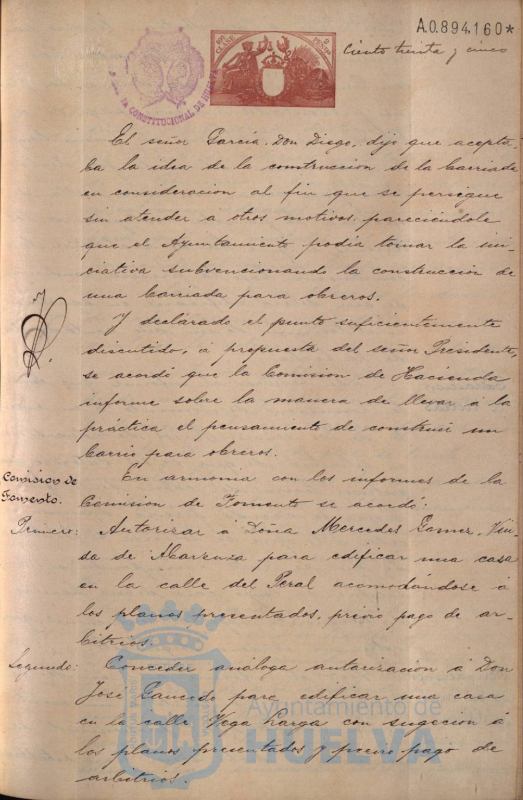 A.0.894.160*
Ciento treinta y cinco
CONSTITUCIONAL DE HUELVA
El señor García, Don Diego, dijo que acepta-
ba la idea de la construcción de la barriada
en consideración al fin que se persigue
sin atender a otros motivos, pareciéndole
que el Ayuntamiento podía tomar la ini-
ciativa subvencionando la construcción de
una barriada para obreros.
Y declarado el punto suficientemente
discutido, á propuesta del señor Presidente,
se acordó que la Comisión de Hacienda
informe sobre la manera de llevar á la
práctica el pensamiento de construir un
barrio para obreros.
Comisión de
Fomento.
En armonía con los informes de la
Comisión de Fomento se acordó:
Primero: Autorizar á Doña Mercedes Viu-
da de para edificar una casa
en la calle del Peral acomodándose á
los planos presentados, previo pago de ar-
bitrios.
Segundo: Conceder análoga autorización á Don
José Saucedo para edificar una casa
en la calle Vega Larga con sugeción á
los planos presentados y previo pago de
arbitrios.
Ayuntamiento de
HUELVA